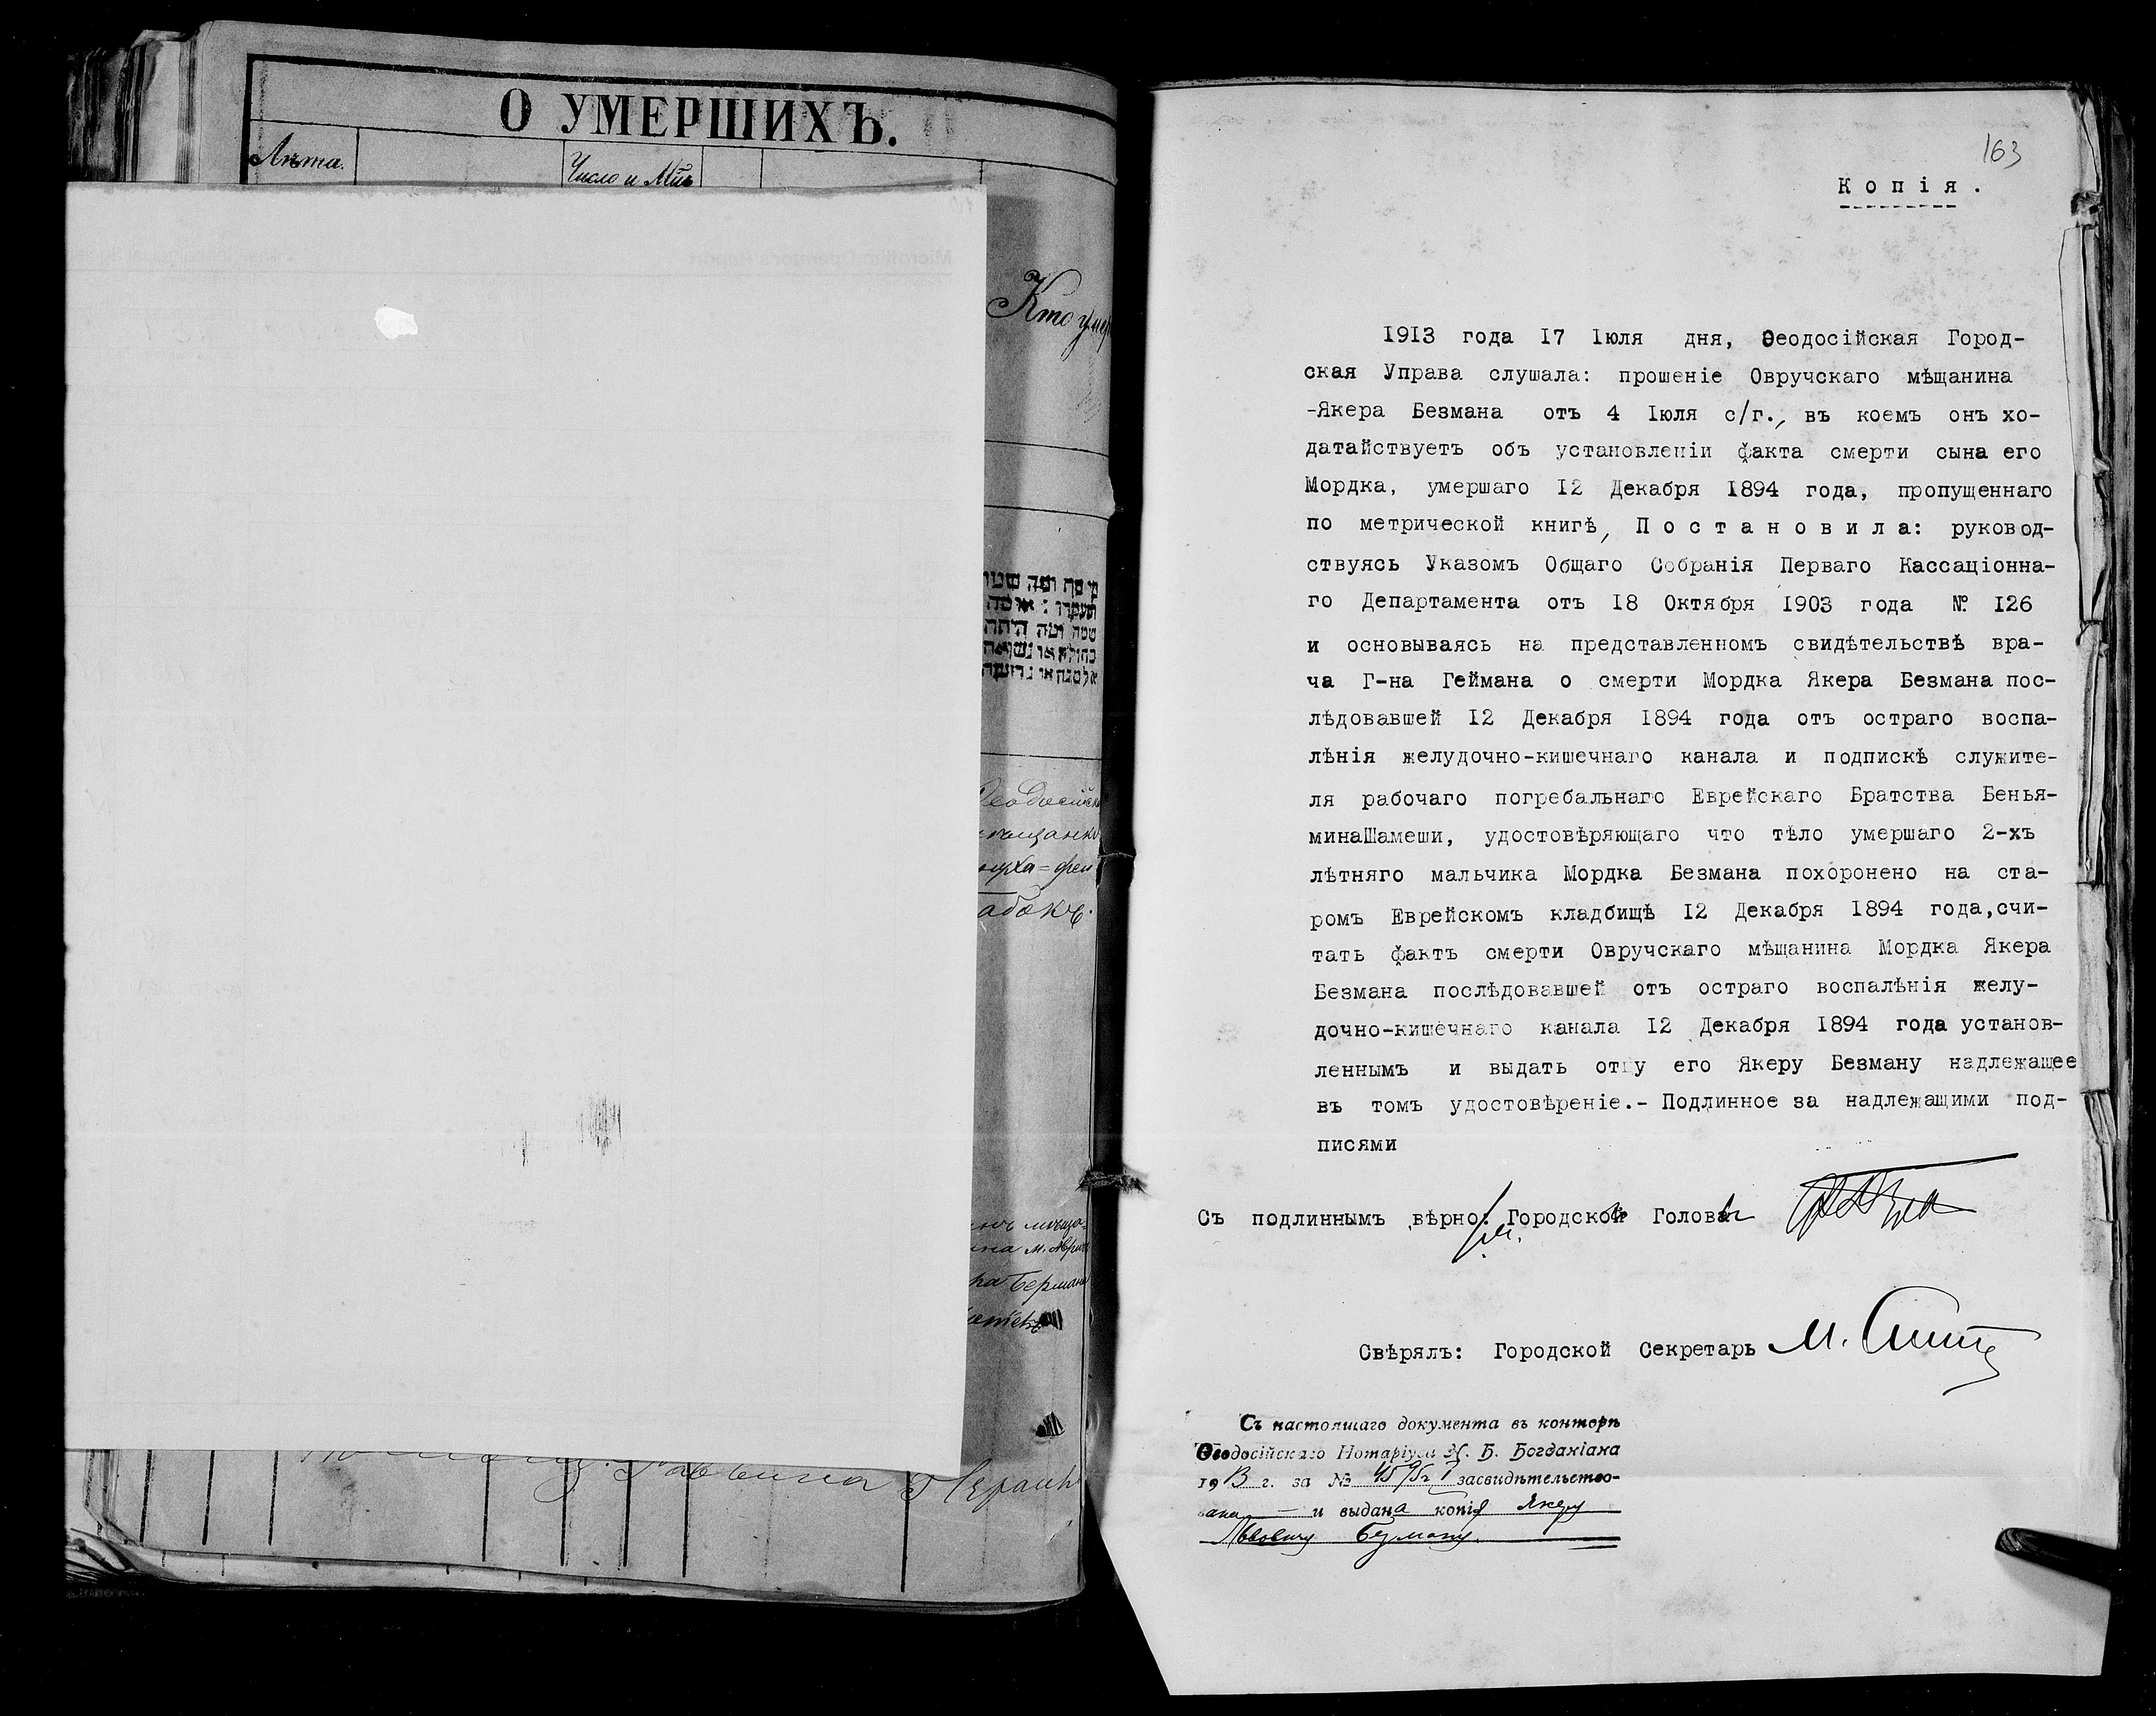 О УМЕРШИХЪ.
Лѣта.
Число и Мцъ
Кто умер
Ѳеодосійск
абокъ.
163
Копія.
1913 года 17 Іюля дня, Ѳеодосійская Город-
ская Управа слушала: прошеніе Овручскаго мѣщанина
-Якера Безмана отъ 4 Іюля с/г., въ коемъ онъ хо-
датайствуетъ объ установленіи факта смерти сына его
Мордка, умершаго 12 Декабря 1894 года, пропущеннаго
по метрической книгѣ, Постановила: руковод-
ствуясь Указомъ Общаго Собранія Перваго Кассаціонна-
го Департамента отъ 18 Октября 1903 года № 126
и основываясь на представленномъ свидѣтельствѣ вра-
ча Г-на Геймана о смерти Мордка Якера Безмана пос-
лѣдовавшей 12 Декабря 1894 года отъ остраго воспа-
лѣнія желудочно-кишечнаго канала и подпискѣ служите-
ля рабочаго погребальнаго Еврейскаго Братства Бенья-
минаШамеши, удостовѣряющаго что тѣло умершаго 2-хъ
лѣтняго мальчика Мордка Безмана похоронено на ста-
ромъ Еврейскомъ кладбищѣ 12 Декабря 1894 года,счи-
тать фактъ смерти Овручскаго мѣщанина Мордка Якера
Безмана послѣдовавшей отъ остраго воспалѣнія желу-
дочно-кишечнаго канала 12 Декабря 1894 года установ-
леннымъ и выдать отцу его Якеру Безману надлежащее
въ томъ удостовѣреніе.- Подлинное за надлежащими под-
писями
Съ подлиннымъ вѣрно: Городской Голова
Свѣрялъ: Городской Секретарь
Съ настоящаго документа въ конторѣ
Ѳеодосійскаго Нотаріуса Н. Б. Богданіана
1913 г. за № засвидѣтельство-
вана — и выдана копія Якеру
Львовичу Безману.